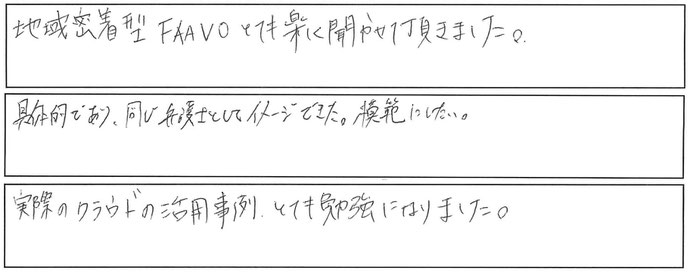 地域密着型FAAVOとても楽しく聞かせて頂きました。
具体的であり、同じ弁護士としてイメージできた。模範にしたい。
実際のクラウドの活用事例、とても勉強になりました。